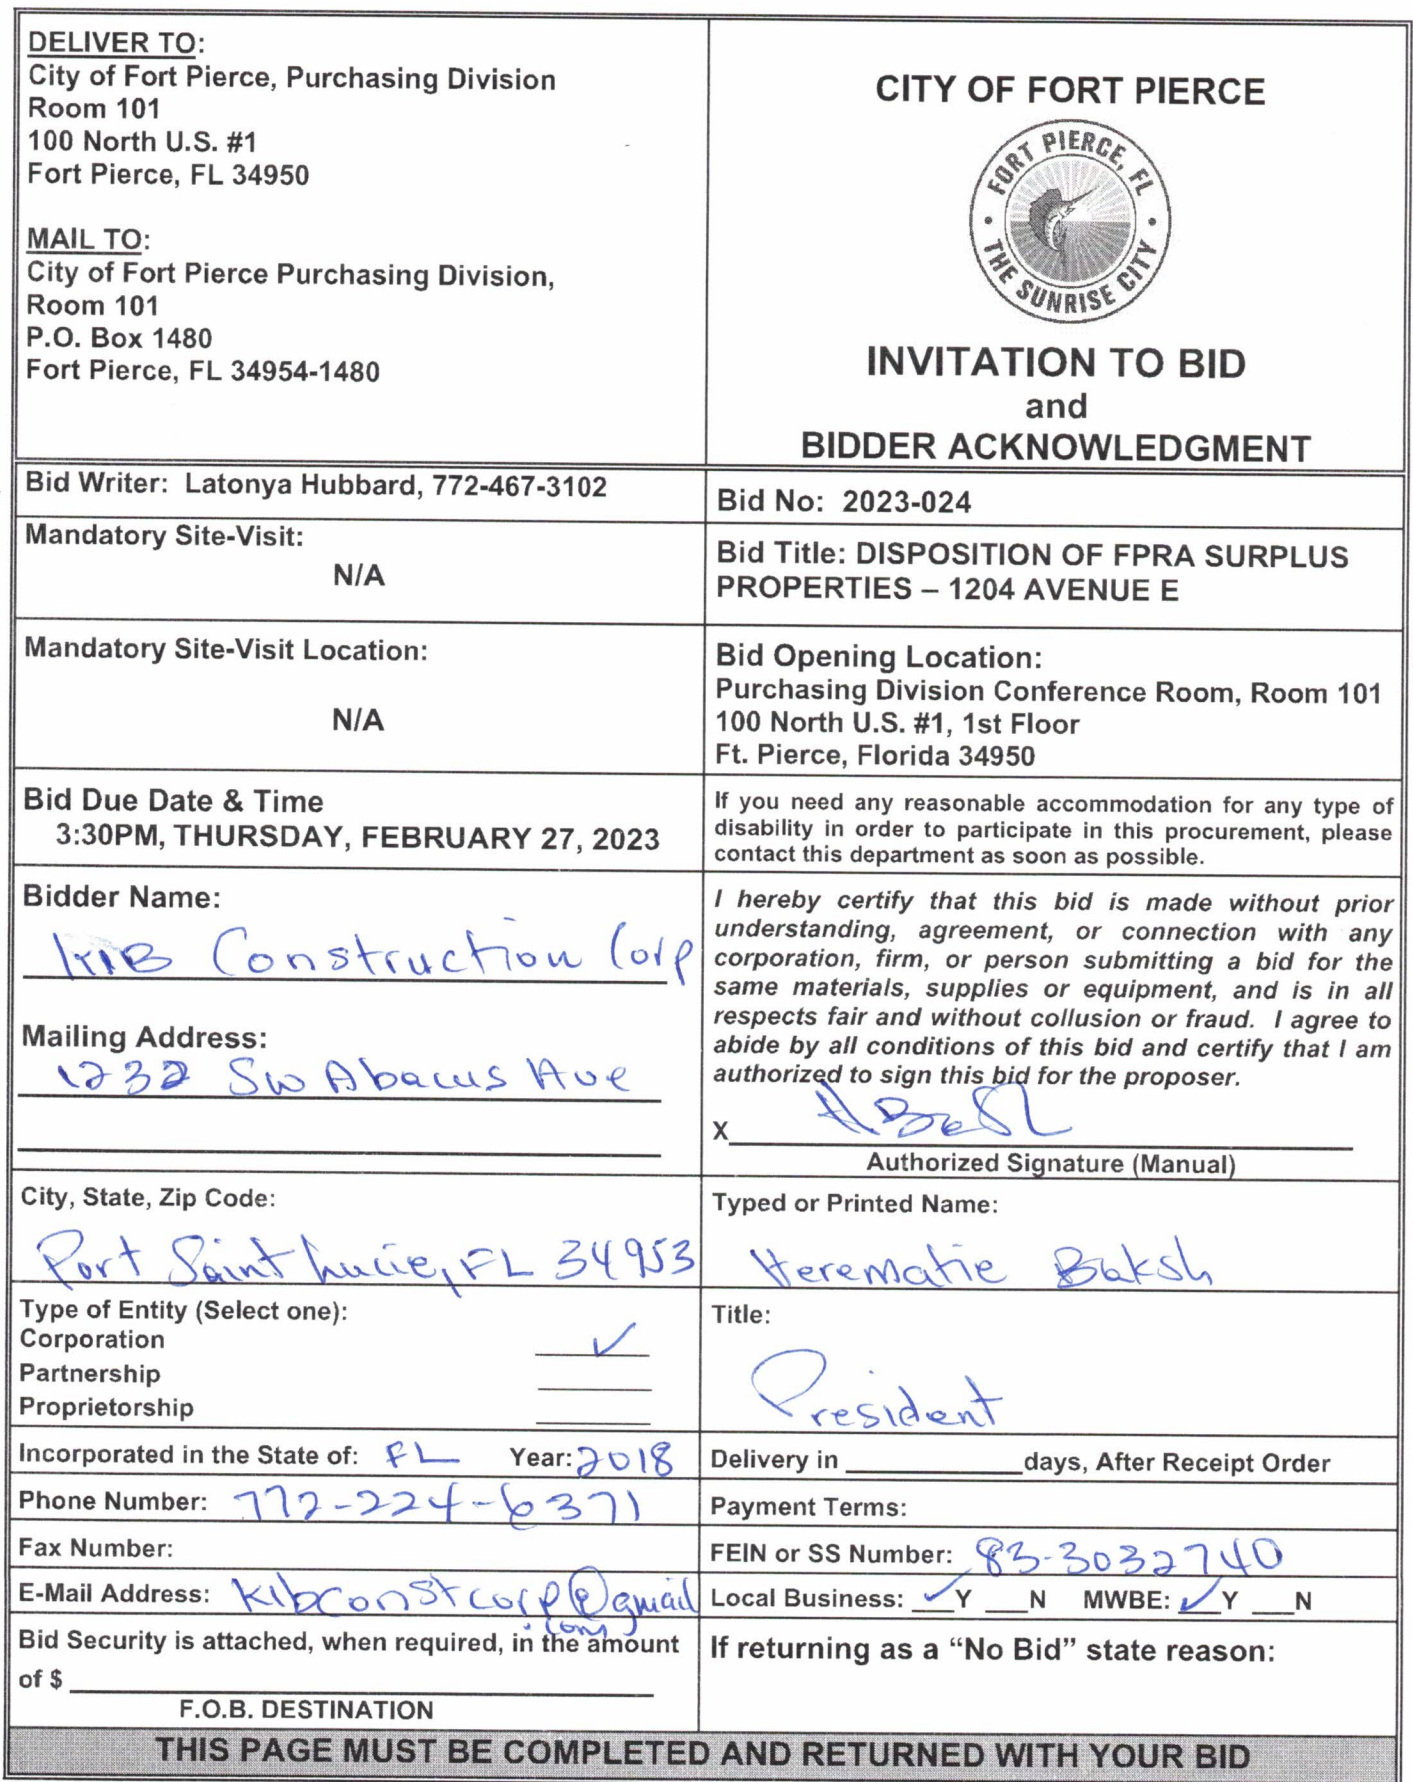 DELIVER TO:
City of Fort Pierce, Purchasing Division
Room 101
100 North U.S. #1
Fort Pierce, FL 34950
MAIL TO:
City of Fort Pierce Purchasing Division,
Room 101
P.O. Box 1480
Fort Pierce, FL 34954-1480
CITY OF FORT PIERCE
FORT PIERCE, FL
THE SUNRISE CITY
INVITATION TO BID
and
BIDDER ACKNOWLEDGMENT
Bid Writer: Latonya Hubbard, 772-467-3102
Bid No: 2023-024
Mandatory Site-Visit:
N/A
Bid Title: DISPOSITION OF FPRA SURPLUS
PROPERTIES – 1204 AVENUE E
Mandatory Site-Visit Location:
N/A
Bid Opening Location:
Purchasing Division Conference Room, Room 101
100 North U.S. #1, 1st Floor
Ft. Pierce, Florida 34950
Bid Due Date & Time
3:30PM, THURSDAY, FEBRUARY 27, 2023
If you need any reasonable accommodation for any type of
disability in order to participate in this procurement, please
contact this department as soon as possible.
Bidder Name:
KIB Construction Corp
Mailing Address:
1232 SW Abacus Ave
I hereby certify that this bid is made without prior
understanding, agreement, or connection with any
corporation, firm, or person submitting a bid for the
same materials, supplies or equipment, and is in all
respects fair and without collusion or fraud. I agree to
abide by all conditions of this bid and certify that I am
authorized to sign this bid for the proposer.
X
Authorized Signature (Manual)
City, State, Zip Code:
Port Saint Lucie, FL 34953
Typed or Printed Name:
Herematie Baksh
Type of Entity (Select one):
Corporation ✓
Partnership
Proprietorship
Title:
President
Incorporated in the State of: FL Year: 2018
Delivery in ____________ days, After Receipt Order
Phone Number: 772-224-6371
Payment Terms:
Fax Number:
FEIN or SS Number: 83-3032740
E-Mail Address: kibconstcorp@gmail
.com
Local Business: ✓ Y ___N MWBE: ✓ Y ___N
Bid Security is attached, when required, in the amount
of $
F.O.B. DESTINATION
If returning as a “No Bid” state reason:
THIS PAGE MUST BE COMPLETED AND RETURNED WITH YOUR BID